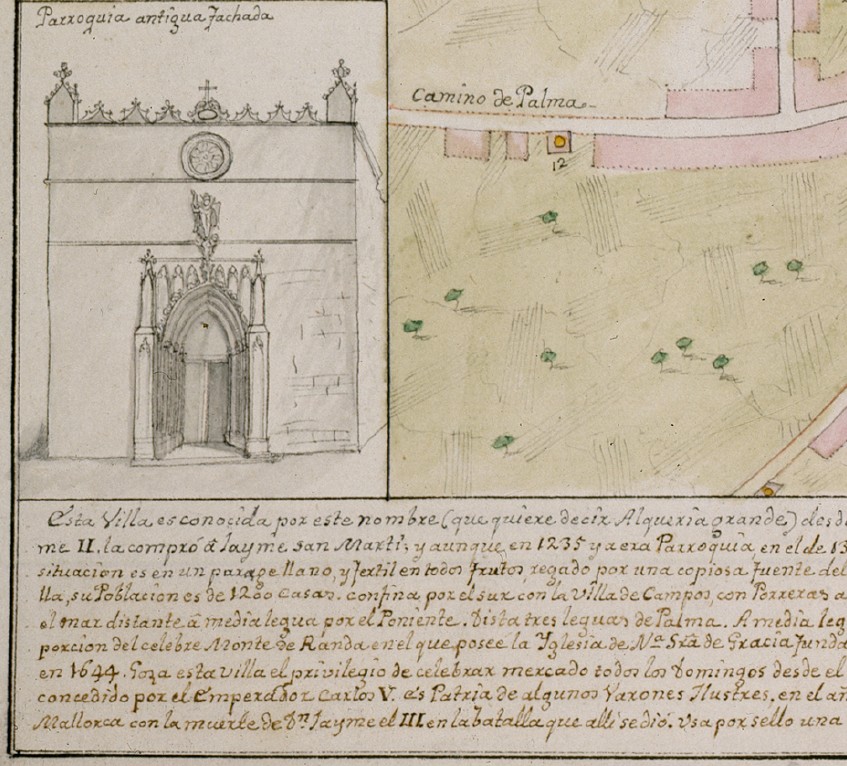 Parroquia antigua fachada
Camino de Palma
12
Esta Villa es conocida por este nombre (que quiere decir Alqueria grande) desd
me II. la compró á Jayme San Marti; y aunque en 1235 ya era Parroquia en el de 13
situacion es en un parage llano, y fertil en todos frutos, regado por una copiosa fuente del
lla, su Poblacion es de 1200 casas. confina por el sur con la Villa de Campos, con Porreras a
el mar distante á media legua por el Poniente. Dista tres leguas de Palma. A media leg
porcion del celebre Monte de Randa en el que posee la Yglesia de Nª Srã de Gracia fund
en 1644. Goza esta villa el privilegio de celebrar mercado todos los Domingos desde el
concedido por el Emperador Carlos V. es Patria de algunos Varones Ilustres, en el añ
Mallorca con la muerte de Dn Jayme el III en la batalla que alli se dió. Usa por sello una